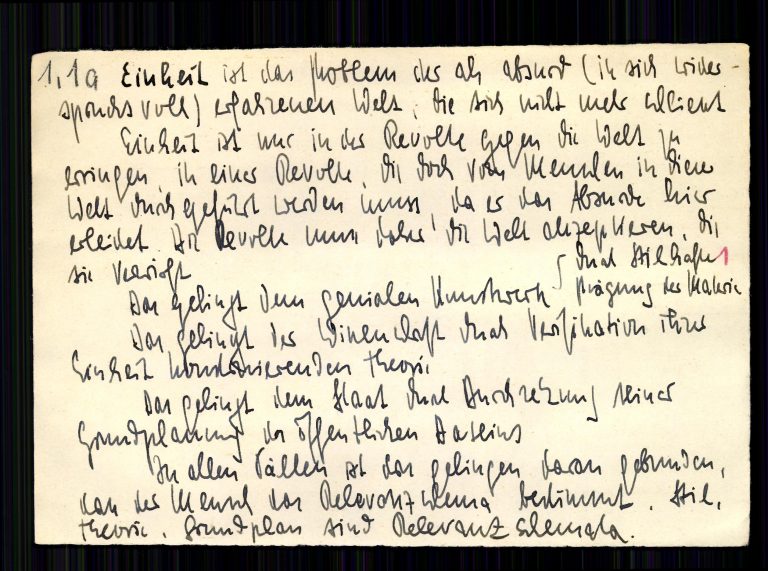 1,1a Einheit ist das Problem der als absurd (in sich wider-
spruchsvoll) erfahrenen Welt, die sich nicht mehr
Einheit ist nur in der Revolte gegen die Welt zu
erringen, in einer Revolte, die doch vom Menschen in dieser
Welt durchgeführt werden muss, da er das Absurde hier
erleidet. Die Revolte muss daher die Welt akzeptieren, die
sie verwirft
durch stilhafte 1
Das gelingt dem genialen Kunstwerk Prägung der Materie
Das gelingt der Wissenschaft durch Verifikation ihrer
Einheit konstruierenden Theorie
Das gelingt dem Staat durch Durchsetzung seiner
Grundplanung des öffentlichen Daseins
In allen Fällen ist das gelingen daran gebunden,
dass der Mensch das Relevanzschema bestimmt. Stil,
Theorie, Grundplan sind Relevanzschemata.